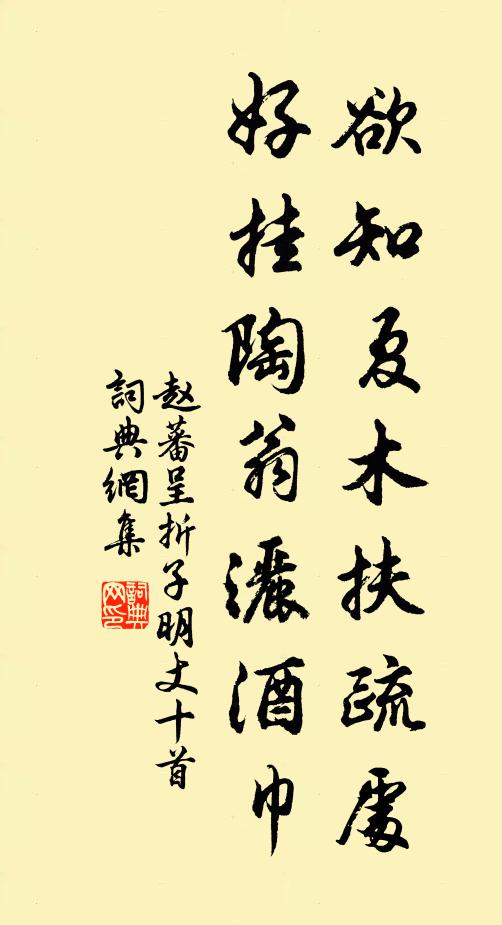 欲知夏木扶疏處
好挂陶翁灑酒巾
赵蕃呈折子明丈十首
詞典網集
詞典網印